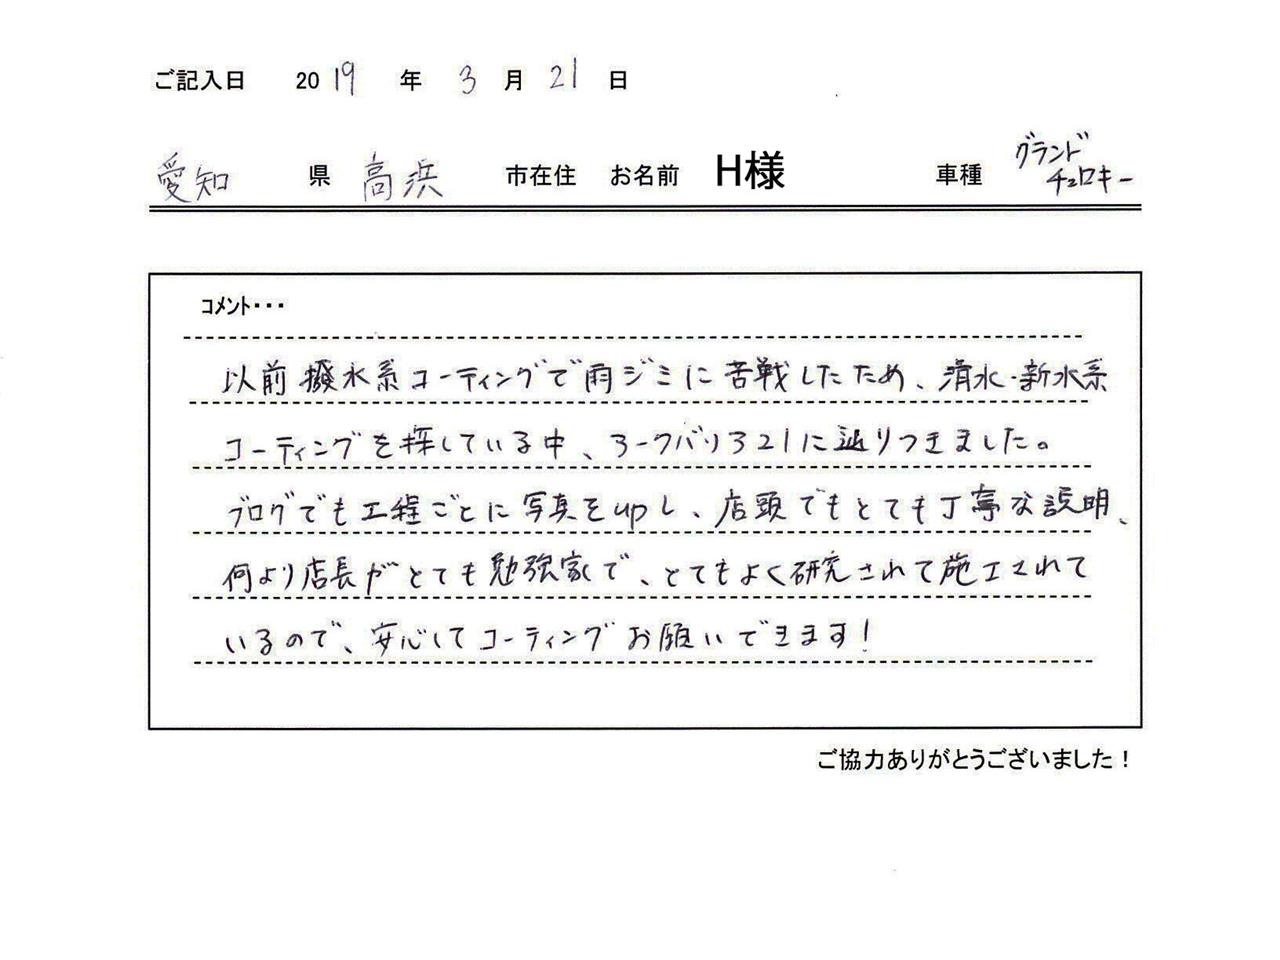 ご記入日 2019 年 3 月 21 日
愛知 県 高浜 市在住 お名前 H様 車種 グランドチェロキー
コメント・・・
以前撥水系コーティングで雨ジミに苦戦したため、滑水・新水系
コーティングを探している中、アークバリア321に辿りつきました。
ブログでも工程ごとに写真をupし、店頭でもとても丁寧な説明、
何より店長がとても勉強家で、とてもよく研究されて施工されて
いるので、安心してコーティングお願いできます!
ご協力ありがとうございました!